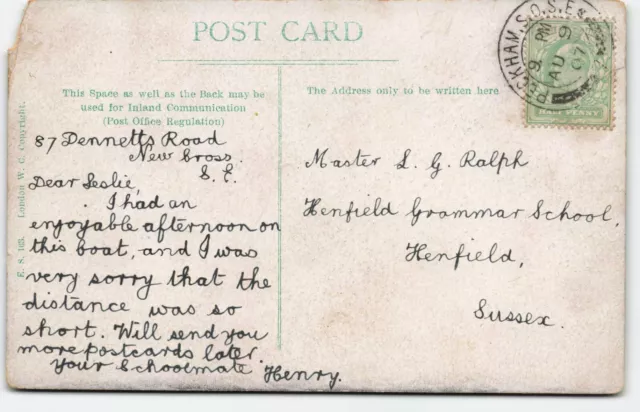 POST CARD
This Space as well as the Back may be
used for Inland Communication
(Post Office Regulation)
The Address only to be written here
87 Dennetts Road
New Cross.
S. E.
Dear Leslie,
I had an
enjoyable afternoon on
this boat, and I was
very sorry that the
distance was so
short. Will send you
more postcards later.
Your Schoolmate Henry.
Master L. G. Ralph
Henfield Grammar School,
Henfield,
Sussex.
E. S. London W. C. Copyright.
PECKHAM.S.O.S.E
9 PM
AU 9
07
HALF PENNY